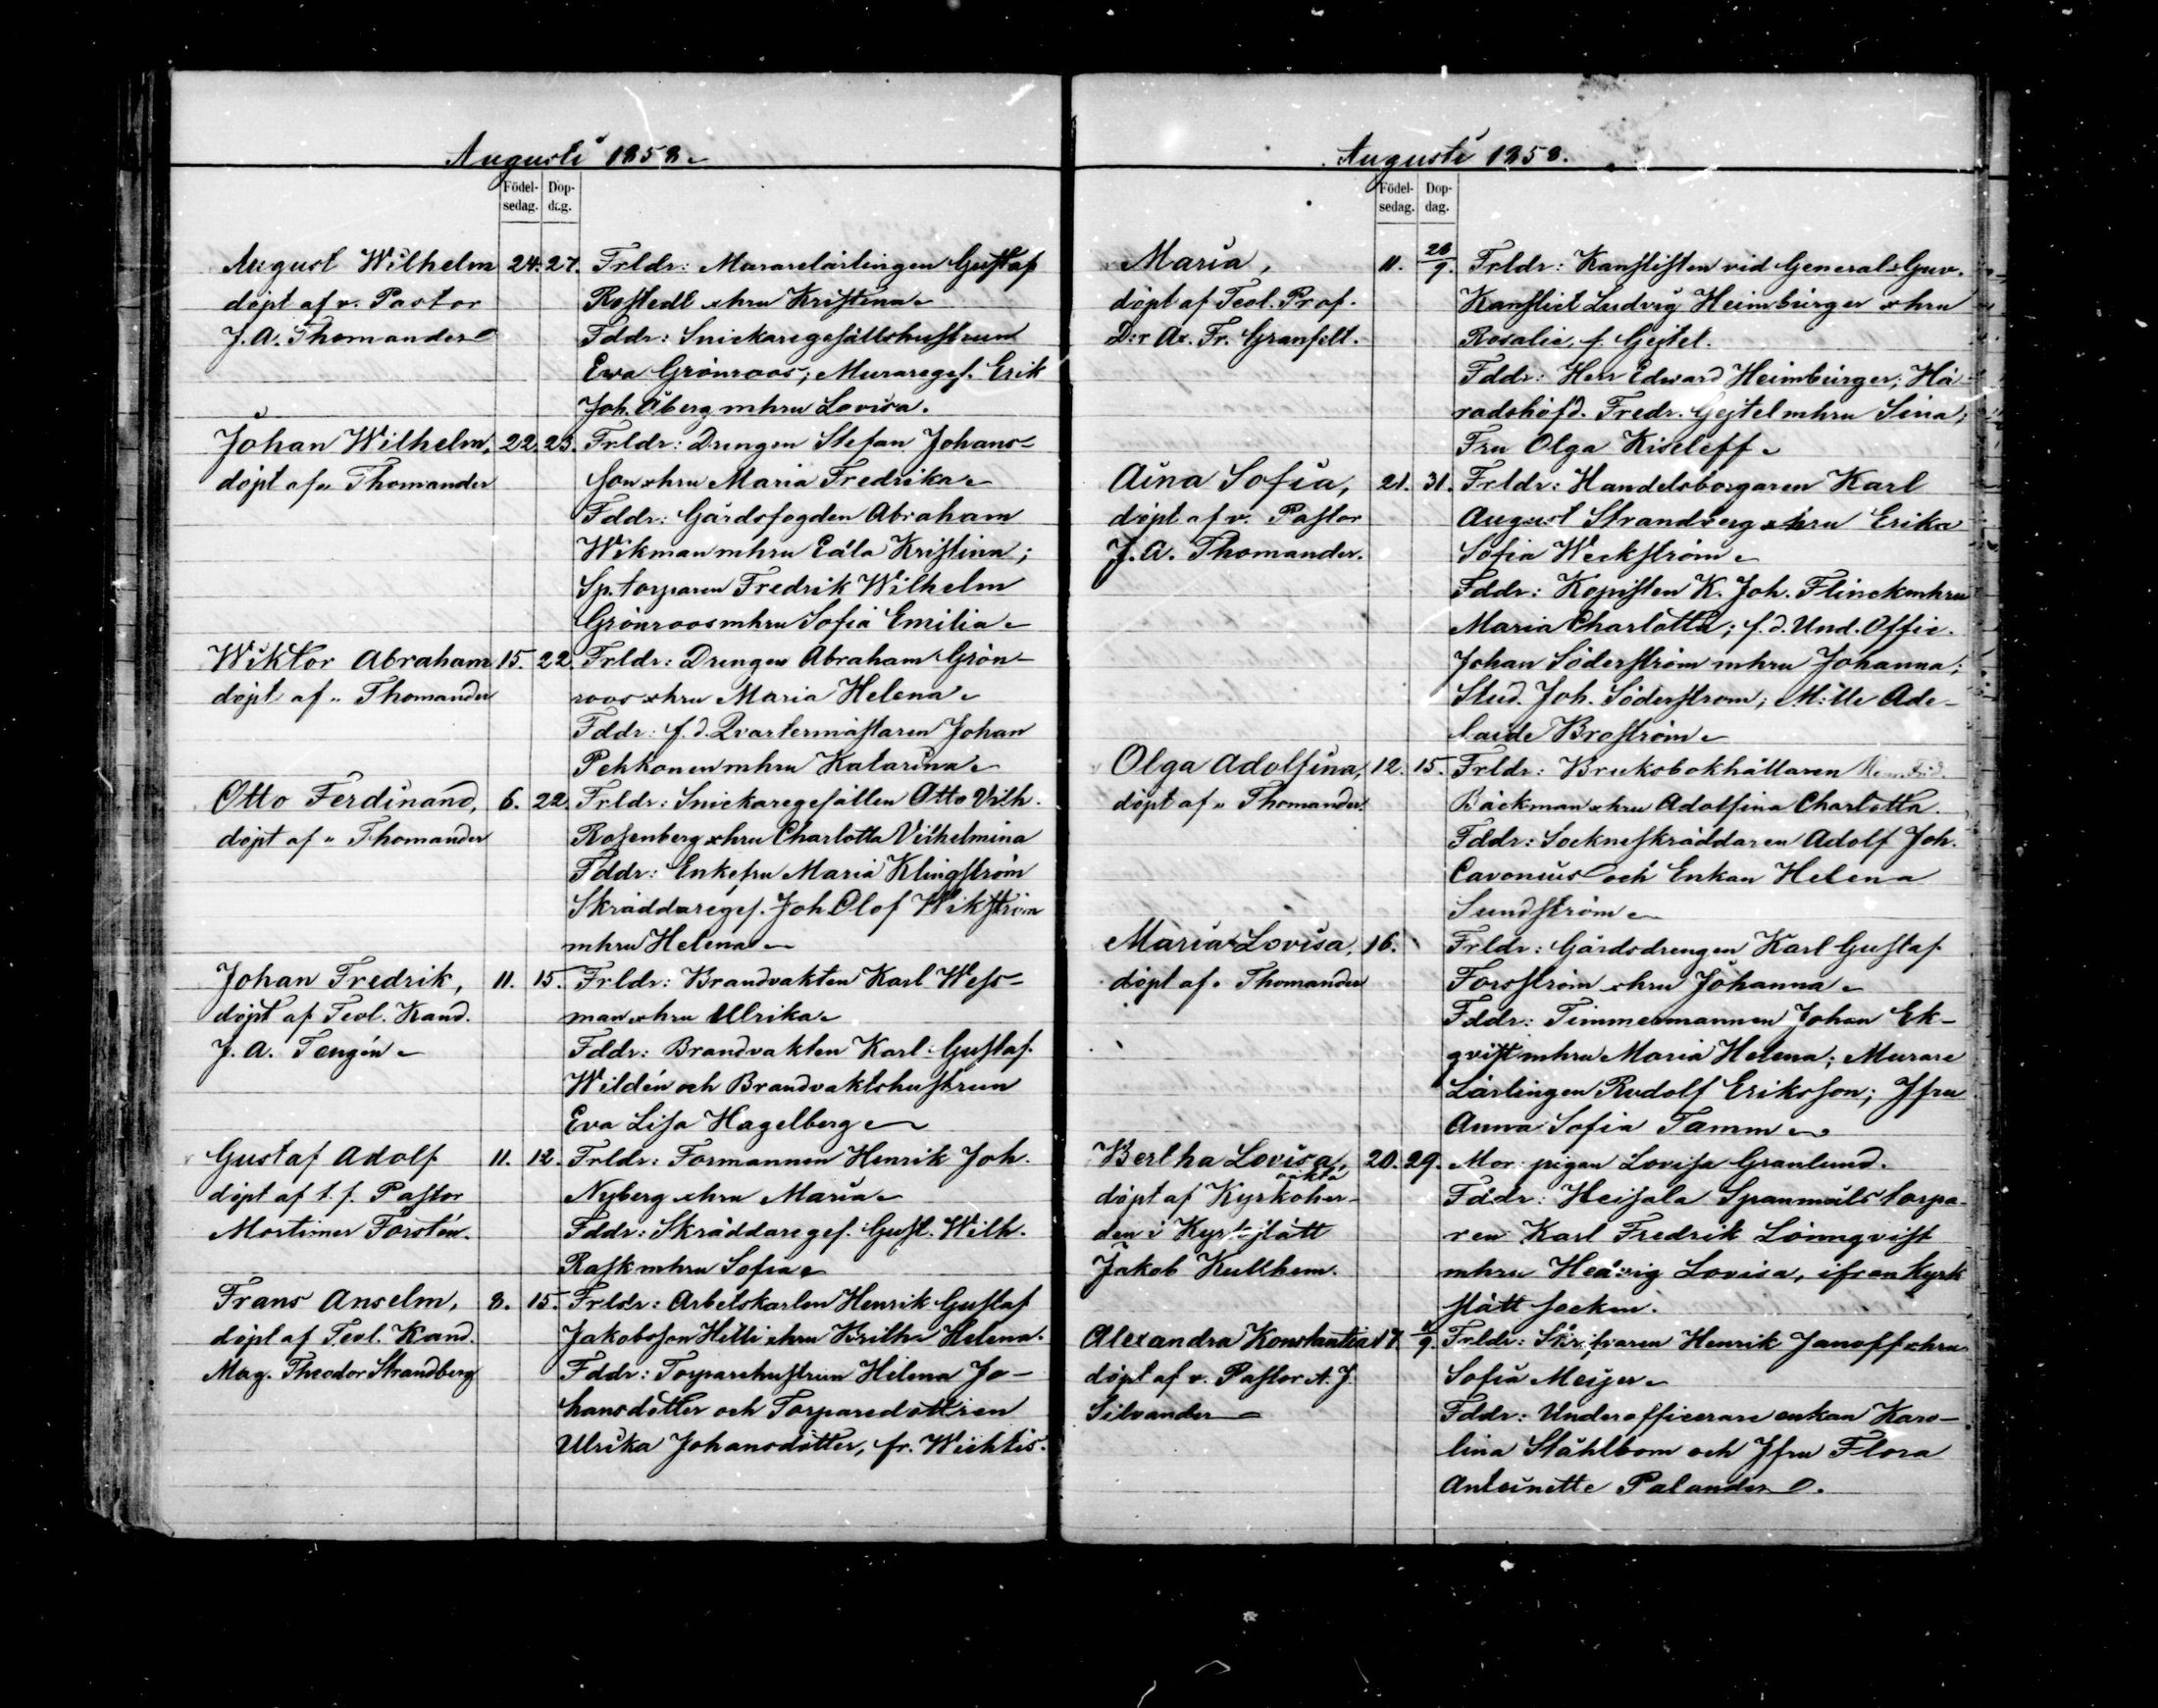 Augusti 1858.
Födel-
sedag.
Dop-
dag.
August Wilhelm 24. 27. Frldr: Murarelärlingen Gustaf
döpt af v. Pastor Rostedt o hru Kristina
J. A. Thomander Fddr: Snickaregesällshustrun
Ewa Grönroos; Muraregef. Erik
Joh. Åberg m hru Lovisa.
Johan Wilhelm, 22. 23. Frldr: Drengen Stefan Johans-
döpt af " Thomander son o hru Maria Fredrika
Fddr: Gårdsfogden Abraham
Wikman m hru Eäla Kristina;
Sp. torparen Fredrik Wilhelm
Grönroos m hru Sofia Emilia
Wiktor Abraham 15. 22. Frldr: Drengen Abraham Grön-
döpt af " Thomander roos o hru Maria Helena
Fddr: f. d. Qvartermästaren Johan
Pehkonen m hru Katarina
Otto Ferdinand, 6. 22. Frldr: Snickaregesällen Otto Vilh.
döpt af " Thomander Rosenberg o hru Charlotta Vilhelmina
Fddr: Enkefru Maria Klingström
Skräddaregef. Joh. Olof Wikström
m hru Helena
Johan Fredrik, 11. 15. Frldr: Brandvakten Karl Wess-
döpt af Teol. Kand. man o hru Ulrika
J. A. Tengén Fddr: Brandvakten Karl Gustaf
Wildén och Brandvaktshustrun
Eva Lisa Hagelberg
Gustaf Adolf 11. 12. Frldr: Formannen Henrik Joh.
döpt af t. f. Pastor Nyberg o hru Maria
Mortimer Forstén. Fddr: Skräddaregef. Gust. Wilh.
Rask m hru Sofia
Frans Anselm, 8. 15. Frldr: Arbetskarlen Henrik Gustaf
döpt af Teol. Kand. Jakobsson Helli o hru Britha Helena.
Mag. Theodor Strandberg Fddr: Torparehustrun Helena Jo-
hansdotter och Torparedottren
Ulrika Johansdotter, fr. Wichtis.
Augusti 1858.
Födel-
sedag.
Dop-
dag.
Maria, 11. 26/9. Frldr: Kanslisten vid General-Guv.
döpt af Teol. Prof. Kansliet Ludvig Heimbürger o hru
D:r Ax. Fr. Granfelt. Rosalie, f. Gejtel.
Fddr: Herr Edward Heimbürger; Hä-
radshöfd. Fredr. Gejtel m hru Sina;
Fru Olga Kiseleff
Aina Sofia, 21. 31. Frldr: Handelsborgaren Karl
döpt af v. Pastor August Strandberg o hru Erika
J. A. Thomander. Sofia Weckström
Fddr: Kopisten K. Joh. Flinck m hru
Maria Charlotta; f. d. Und. Offic.
Johan Söderström m hru Johanna;
Stud. Joh. Söderström; M:lle Ade-
laide Broström
Olga Adolfina, 12. 15. Frldr: Bruksbokhållaren
döpt af " Thomander. Bäckman o hru Adolfina Charlotta.
Fddr: Sockneskräddaren Adolf Joh.
Cavonius och Enkan Helena
Sundström
Maria Lovisa, 16. Frldr: Gårdsdrengen Karl Gustaf
döpt af " Thomander Forsström o hru Johanna
Fddr: Timmermannen Johan Ek-
qvist m hru Maria Helena; Murare
Lärlingen Rudolf Eriksson; Jfru
Anna Sofia Tamm
Bertha Lovisa, 20. 29. Mor: pigan Lovisa Granlund.
oäkta
döpt af Kyrkoher- Fddr: Heisala Spanmåls torpa-
den i Kyrkslätt ren Karl Fredrik Lönnqvist
Jakob Kullhem. m hru Hedvig Lovisa, ifrån Kyrk
slätt socken.
Alexandra Konstantia 17. 9. Frldr: Skrifvaren Henrik Janoff o hru
döpt af v. Pastor A. J. Sofia Meijer
Silvander Fddr: Underofficerare enkan Karo-
lina Ståhlbom och Jfru Flora
Antoinette Palander.